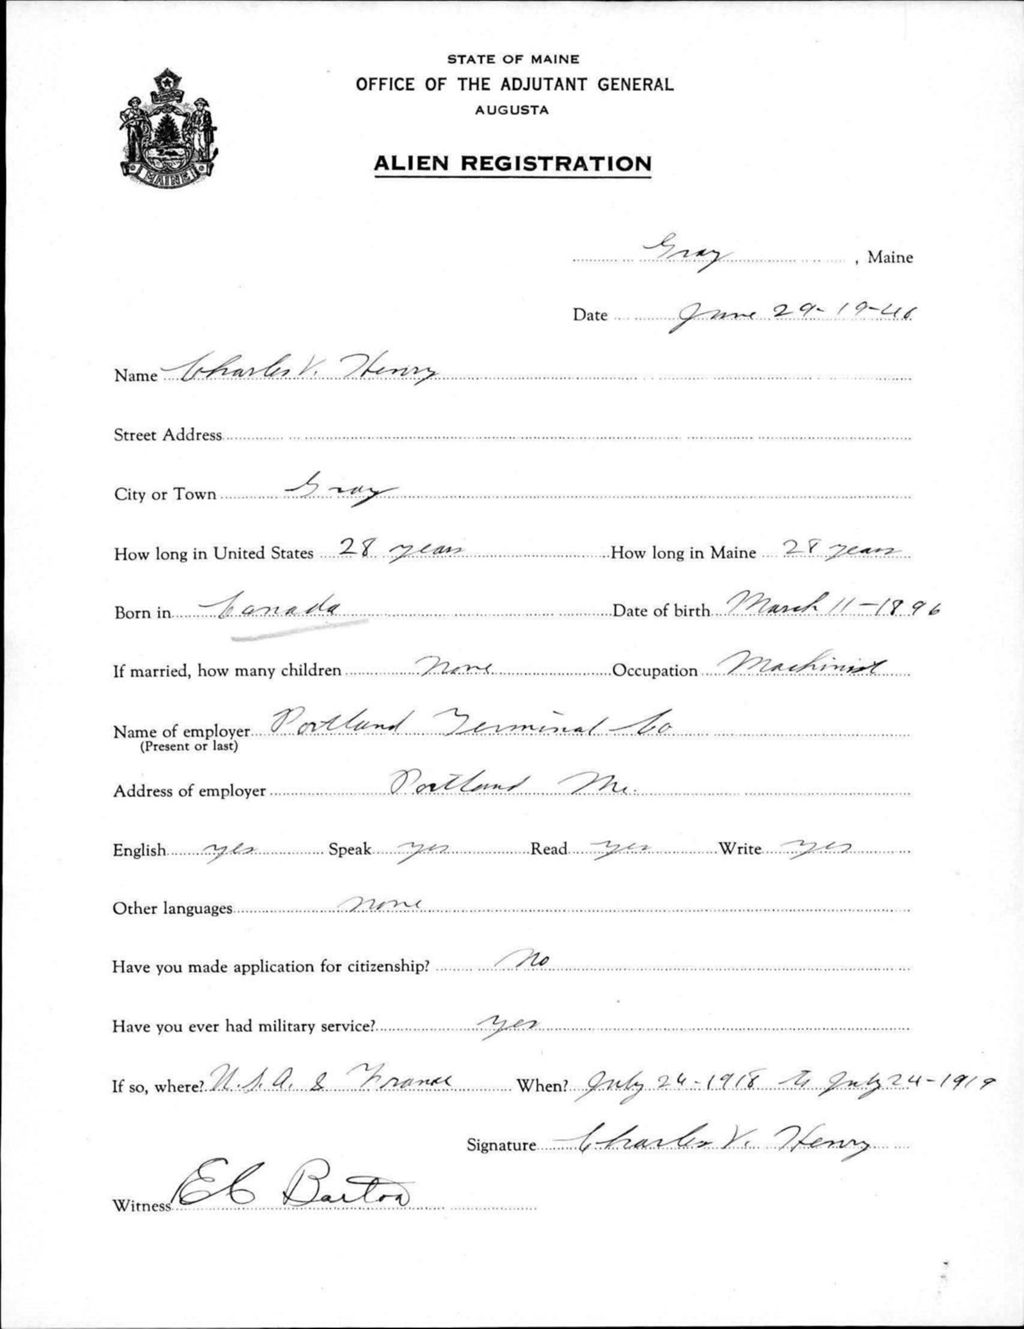 STATE OF MAINE
OFFICE OF THE ADJUTANT GENERAL
AUGUSTA
ALIEN REGISTRATION
MAINE
Gray, Maine
Date June 29-19-40
Name Charles V. Henry
Street Address
City or Town Gray
How long in United States 28 years How long in Maine 28 years
Born in Canada Date of birth March 11-1896
If married, how many children None Occupation Machinist
Name of employer Portland Terminal Co
(Present or last)
Address of employer Portland Me.
English yes Speak yes Read yes Write yes
Other languages none
Have you made application for citizenship? No
Have you ever had military service? yes
If so, where? U.S.A. & France When? July 24-1918 to July 24-1919
Signature Charles V. Henry
Witness E C Barton